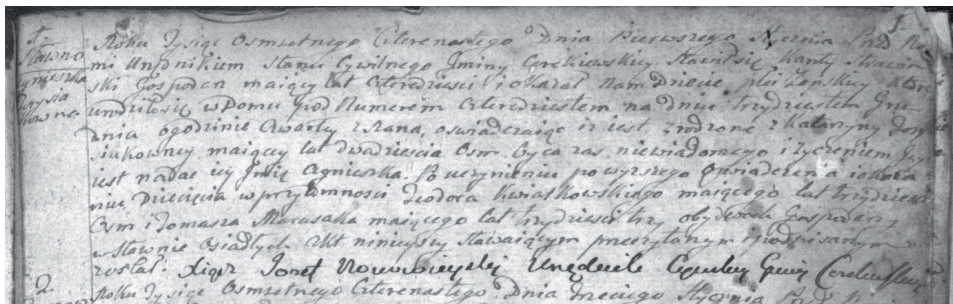 1.
Sławno
Agnieszka
Roku Tysiąc Osmsetnego Czternastego Dnia Pierwszego Stycznia Przed Na
mi Urzędnikiem Stanu Cywilnego Gminy Stawił się Kanty
ski Gospodarz maiący lat Czterdziesci i okazał Nam dziecie płci Zenskiy które
urodziło się w Domu pod Numerem Czterdziestem na dniu trzydziestem Gru
dnia o godzinie Czwarty z Rana, oswiadczaiąc iz iest zrodzone z Katarzyny
siukowney maiącey lat dwadziescia Osm. Oyca zas niewiadomego i zyczeniem Jego
iest nadac iey Jmię Agnieszka. Po uczynieniu powyzszego Oswiadczenia i okaza
niu Dziecięcia w przytomnosci Teodora Kwiatkowskiego maiącego lat trzydziesci
Osm i Tomasza Marusaka maiącego lat trzydziesci trzy obydwoch Gospodarzy
w Sławnie Osiadłych Akt ninieyszy Stawaiącym przeczytanym i podpisanym
został. Xiądz Jozef Urzędnik Cywilny Gminy
2.
Roku Tysiąc Osmsetnego Czternastego Dnia Trzeciego Stycznia